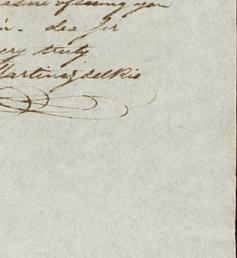 pleasure of seeing you
in - dea Sir
ery truly
Martinez del Rio